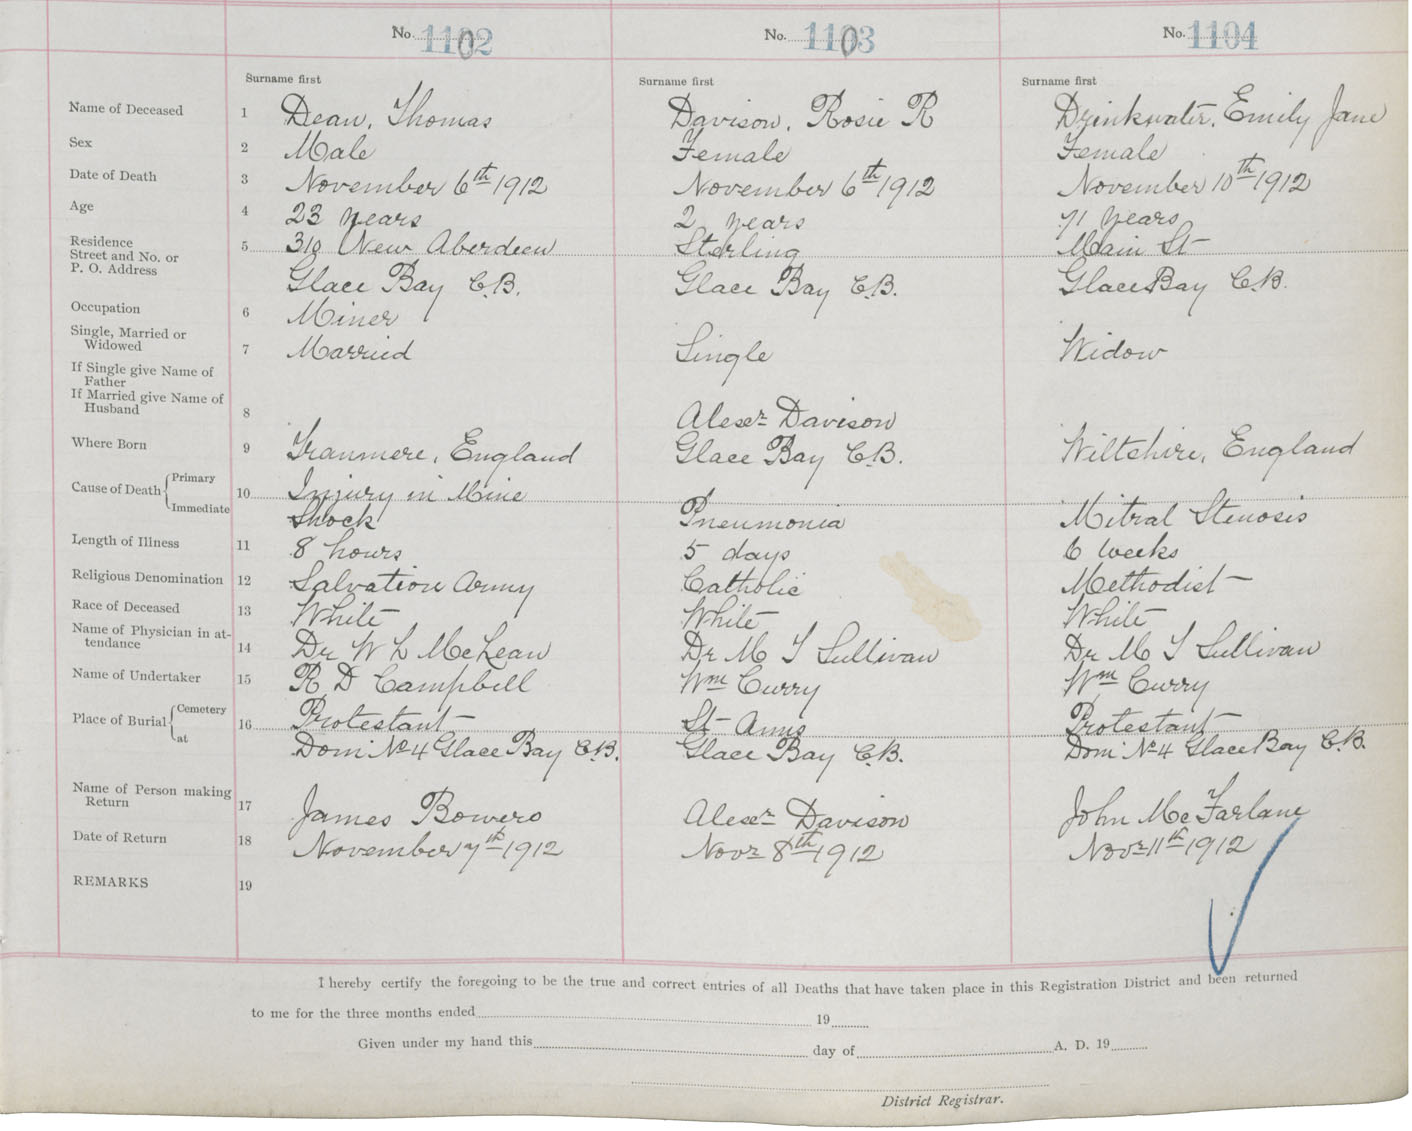 No. 1102 No. 1103 No. 1104
Surname first Surname first Surname first
Name of Deceased 1 Dean, Thomas Davison, Rosie R Drinkwater, Emily Jane
Sex 2 Male Female Female
Date of Death 3 November 6th 1912 November 6th 1912 November 10th 1912
Age 4 23 years 2 years 71 years
Residence 5 310 New Aberdeen Sterling Main St
Street and No. or
P. O. Address Glace Bay C.B. Glace Bay C.B. Glace Bay C.B.
Occupation 6 Miner
Single, Married or
Widowed 7 Married Single Widow
If Single give Name of
Father
If Married give Name of
Husband 8 Alexr Davison
Where Born 9 Tranmere, England Glace Bay C.B. Wiltshire, England
Cause of Death Primary 10 Injury in Mine
Immediate Shock Pneumonia Mitral Stenosis
Length of Illness 11 8 hours 5 days 6 weeks
Religious Denomination 12 Salvation Army Catholic Methodist
Race of Deceased 13 White White White
Name of Physician in at-
tendance 14 Dr W L McLean Dr M T Sullivan Dr M T Sullivan
Name of Undertaker 15 R D Campbell Wm Curry Wm Curry
Place of Burial Cemetery 16 Protestant St Anns Protestant
at Domi No 4 Glace Bay C.B. Glace Bay C.B. Dom No 4 Glace Bay C.B.
Name of Person making
Return 17 James Bowers Alexr Davison John McFarlane
Date of Return 18 November 7th 1912 Novr 8th 1912 Novr 11th 1912
REMARKS 19
I hereby certify the foregoing to be the true and correct entries of all Deaths that have taken place in this Registration District and been returned
to me for the three months ended 19
Given under my hand this day of A. D. 19
District Registrar.